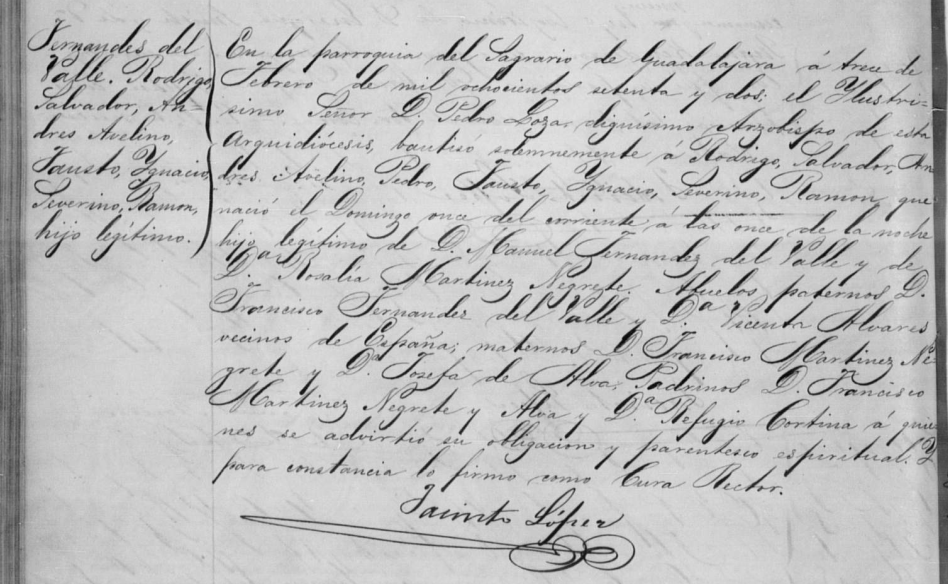 Fernandes del
Valle. Rodrigo
Salvador, An-
dres Avelino,
Fausto, Ygnacio,
Severino, Ramon,
hijo legítimo.
En la parroquia del Sagrario de Guadalajara á trece de
Febrero de mil ochocientos setenta y dos; el Ylustri-
simo Señor D. Pedro Loza dignísimo Arzobispo de esta
Arquidiócesis, bautisó solemnemente á Rodrigo, Salvador, An
dres Avelino, Pedro, Fausto, Ygnacio, Severino, Ramon que
nació el Domingo once del corriente á las once de la noche
hijo legítimo de D. Manuel Fernandez del Valle y de
Dª Rosalía Martinez Negrete. Abuelos paternos D.
Francisco Fernandez del Valle y Dª Vicenta Alvares
vecinos de España; maternos D. Francisco Martinez Ne
grete y Dª Josefa de Alva. Padrinos D. Francisco
Martinez Negrete y Alva y Dª Refugio Cortina á quie
nes se advirtió su obligacion y parentesco espiritual. Y
para constancia lo firmo como Cura Rector.
Jacinto López